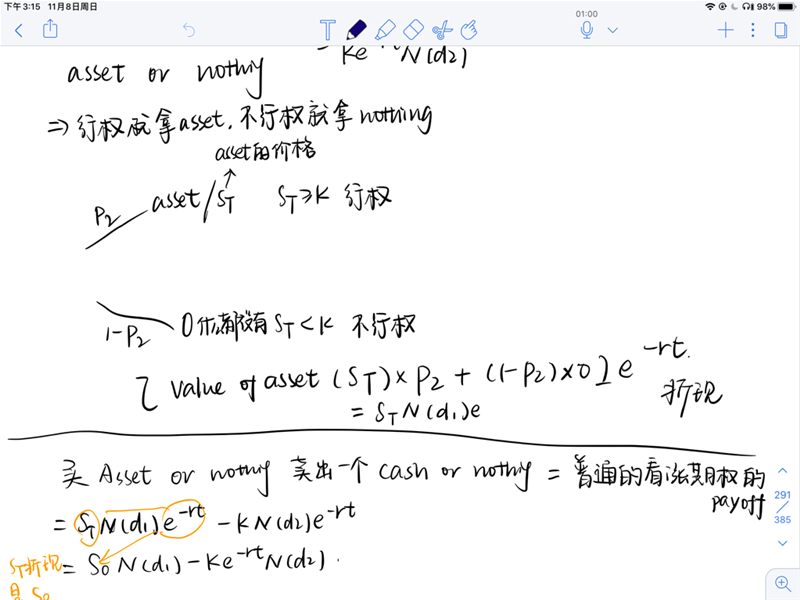 下午3:15 11月8日周日
98%
01:00
asset or nothing
- Ke^-rt N(d2)
⇒ 行权就拿asset, 不行权就拿nothing
asset的价格
P2
asset/ST ST≥K 行权
1-P2
0 什么都没有 ST<K 不行权
[ value of asset (ST)×P2 + (1-P2)×0 ] e^-rt.
折现
= ST N(d1)e
买 Asset or nothing 卖出一个 cash or nothing = 普通的看涨期权的
payoff
= ST N(d1)e^-rt - KN(d2)e^-rt
ST折现
是 S0
= S0 N(d1) - Ke^-rt N(d2).
291
385